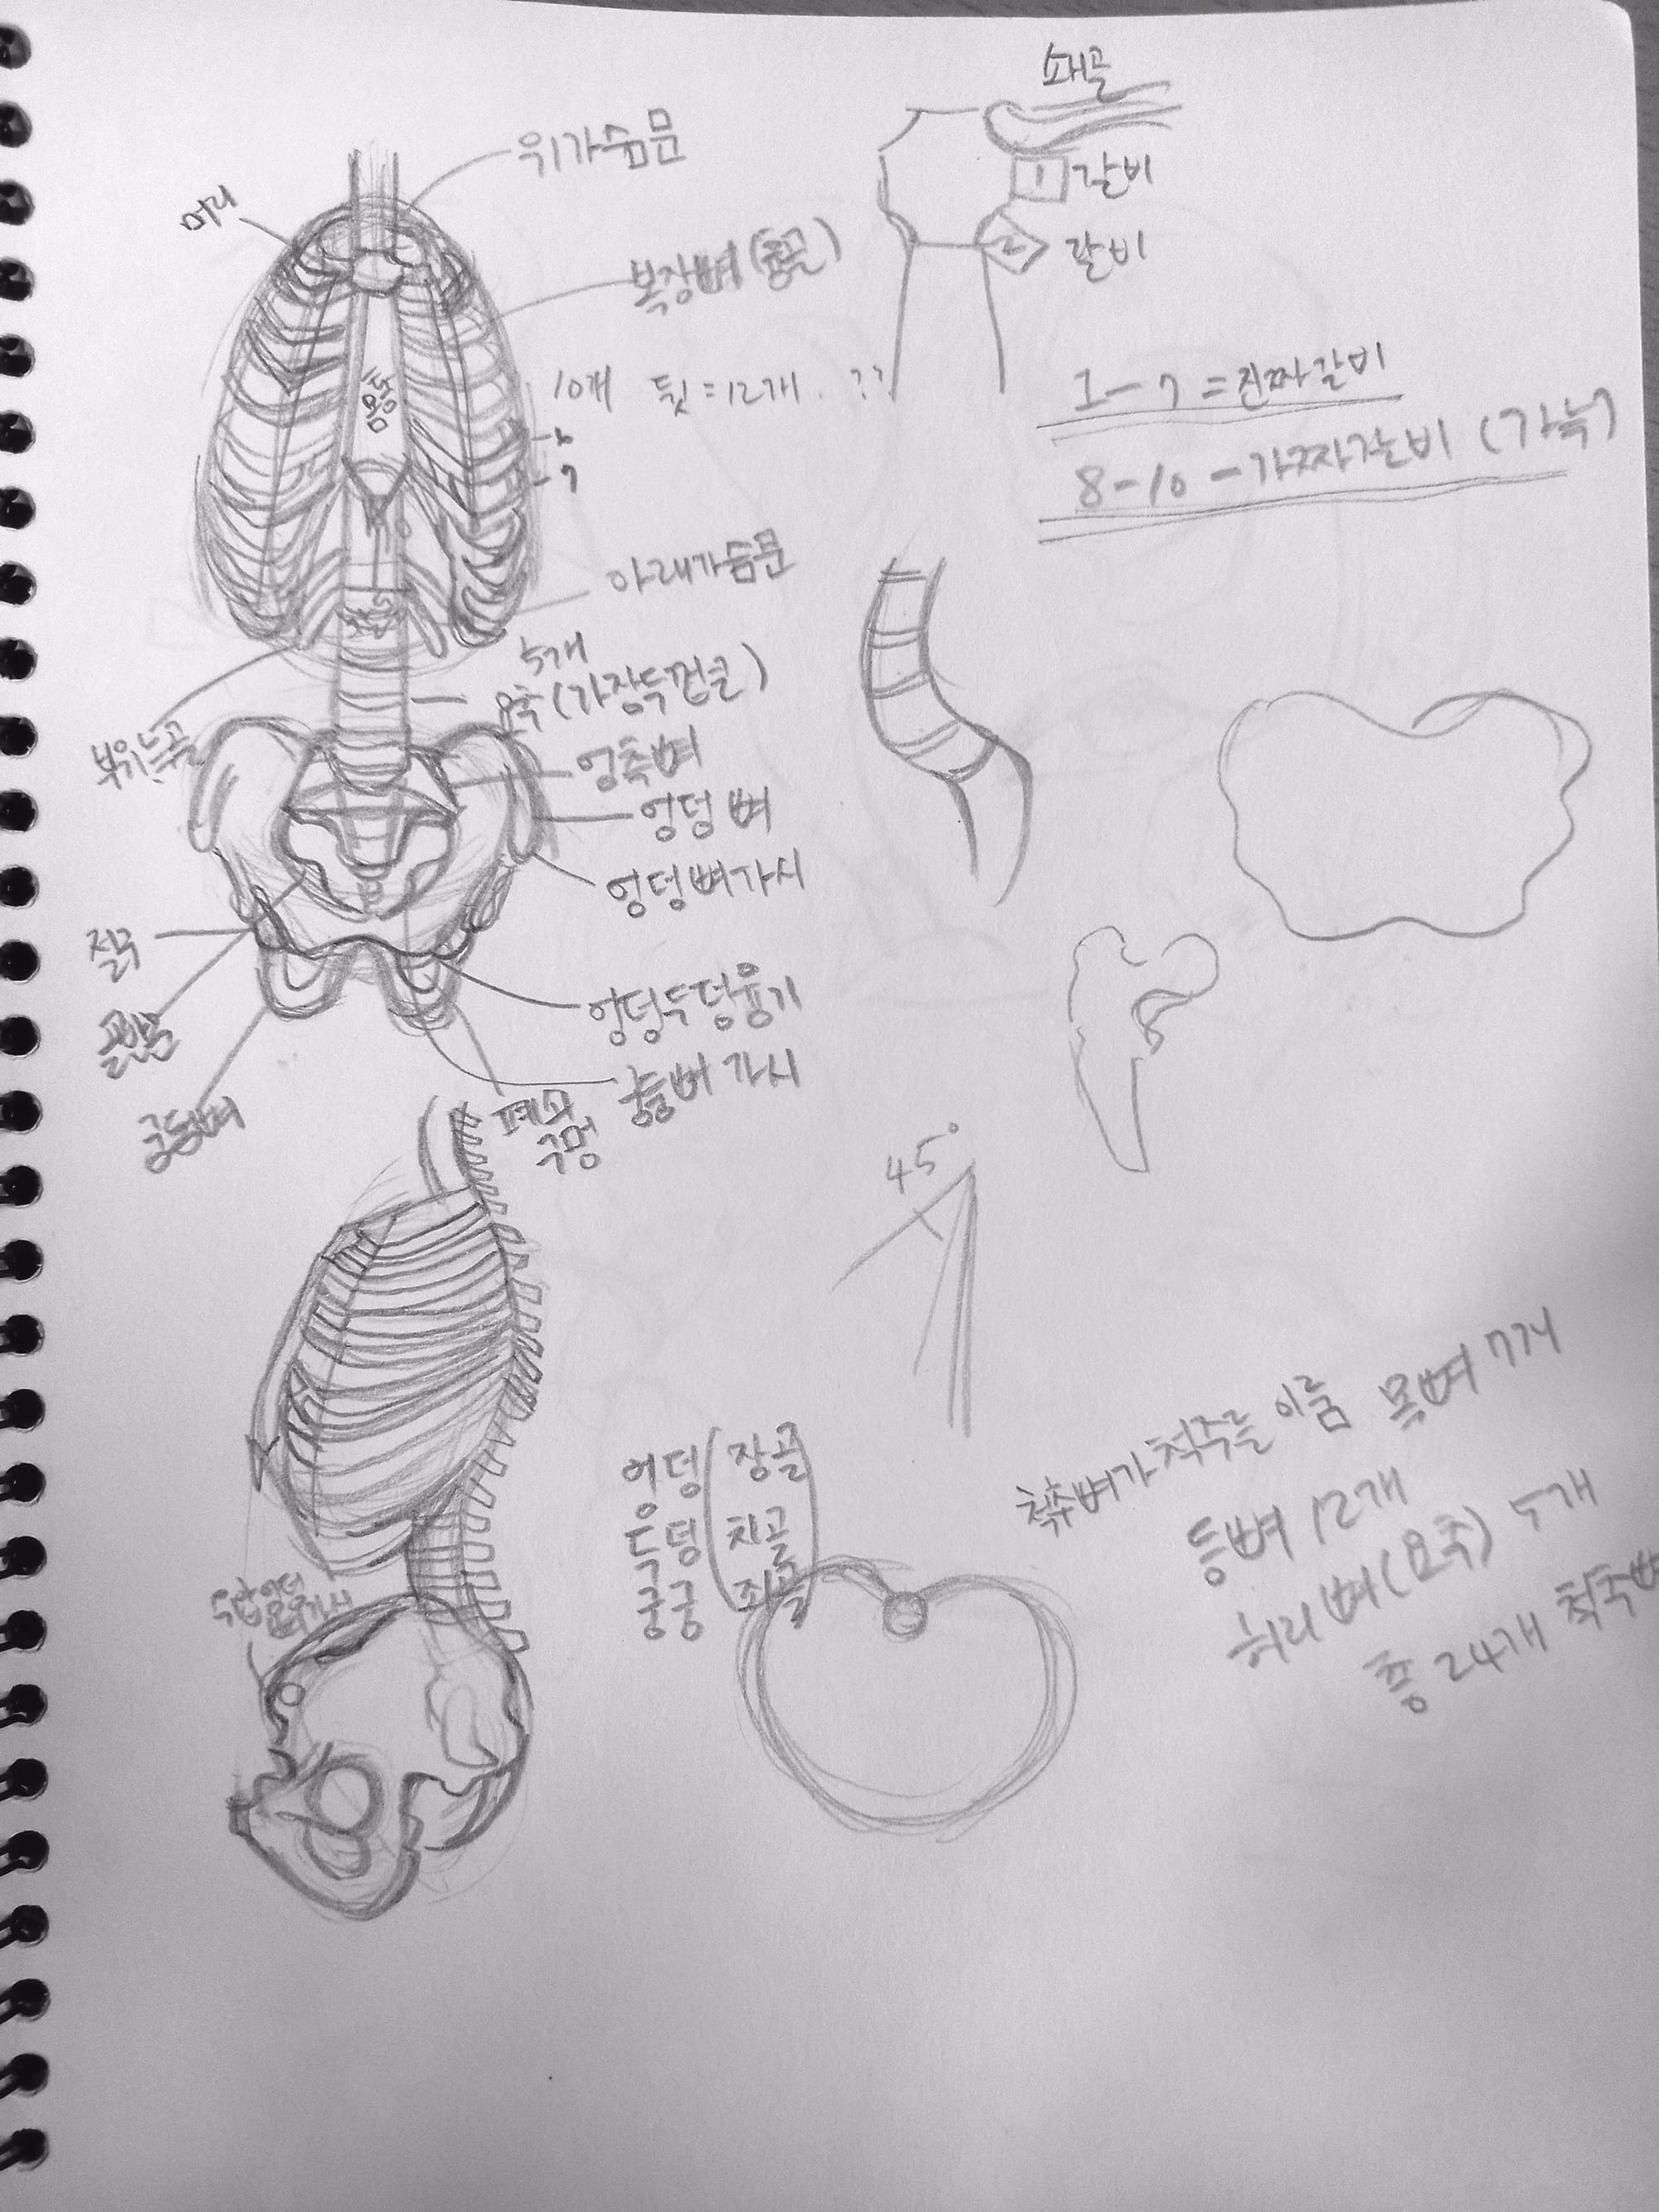 쇄골
위가슴문
1 갈비
머리
복장뼈 (흉골)
2 갈비
몸통
10개 뒷=12개. ??
1-7 =진짜갈비
6
8-10 -가짜갈비 (가늑)
7
아래가슴문
5개
요추 (가장두껍군)
엉측뼈
엉덩뼈
엉덩뼈가시
엉덩두덩융기
궁둥뼈가시
궁둥뼈
폐쇄
구멍
45°
엉덩 (장골)
두덩 (치골)
궁궁 (좌골)
척추뼈가척주를 이룸 목뼈 7개
등뼈 12개
허리뼈(요추) 5개
총 24개 척추뼈